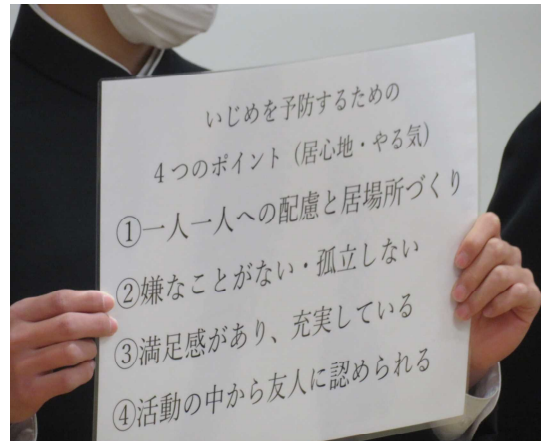 いじめを予防するための
4つのポイント（居心地・やる気）
①一人一人への配慮と居場所づくり
②嫌なことがない・孤立しない
③満足感があり、充実している
④活動の中から友人に認められる